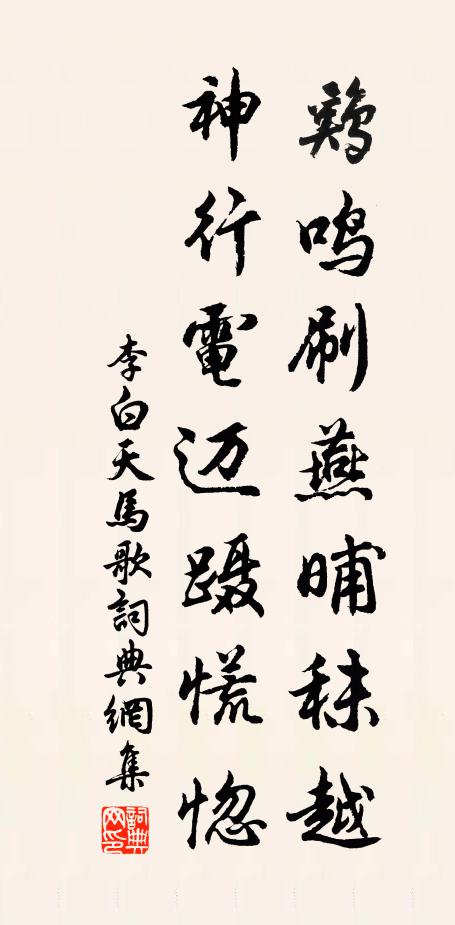 鷄鸣刷燕晡秣越
神行電迈蹑慌惚
李白天馬歌詞典網集
詞典网印